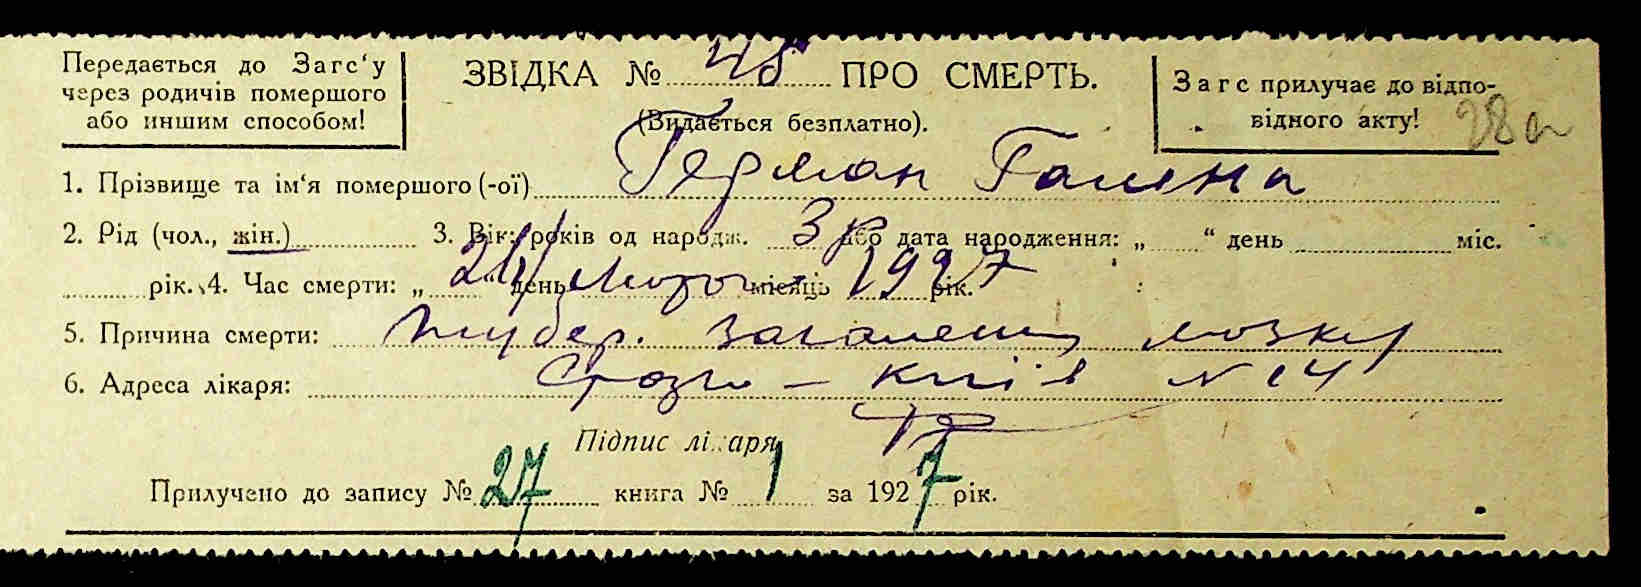 Передається до Загс'у
через родичів помершого
або иншим способом!
ЗВІДКА № 45 ПРО СМЕРТЬ.
(Видається безплатно).
Загс прилучає до відпо-
відного акту!
28
1. Прізвище та ім'я помершого (-ої) Герман Галина
2. Рід (чол., жін.) 3. Вік: років од народж. 3 р або дата народження: „ “ день міс.
рік. 4. Час смерти: „ 24 “ день місяць 1927 рік.
5. Причина смерти: тубер. запалення мозку
6. Адреса лікаря: Київ N 14
Підпис лікаря
Прилучено до запису № 27 книга № 1 за 1927 рік.